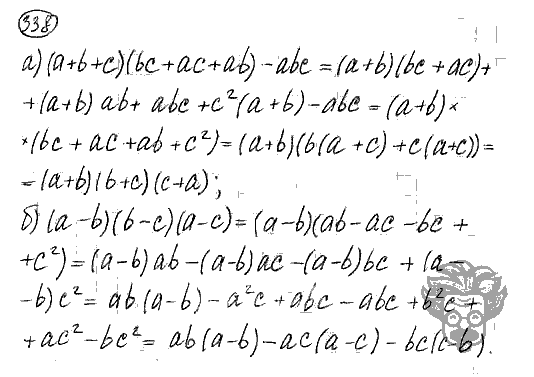 338
а) (a+b+c)(bc+ac+ab)-abc = (a+b)(bc+ac)+
+(a+b)ab+abc+c²(a+b)-abc = (a+b)×
×(bc+ac+ab+c²) = (a+b)(b(a+c)+c(a+c)) =
= (a+b)(b+c)(c+a);
б) (a-b)(b-c)(a-c) = (a-b)(ab-ac-bc+
+c²) = (a-b)ab-(a-b)ac-(a-b)bc+(a-
-b)c² = ab(a-b)-a²c+abc-abc+b²c+
+ac²-bc² = ab(a-b)-ac(a-c)-bc(c-b).